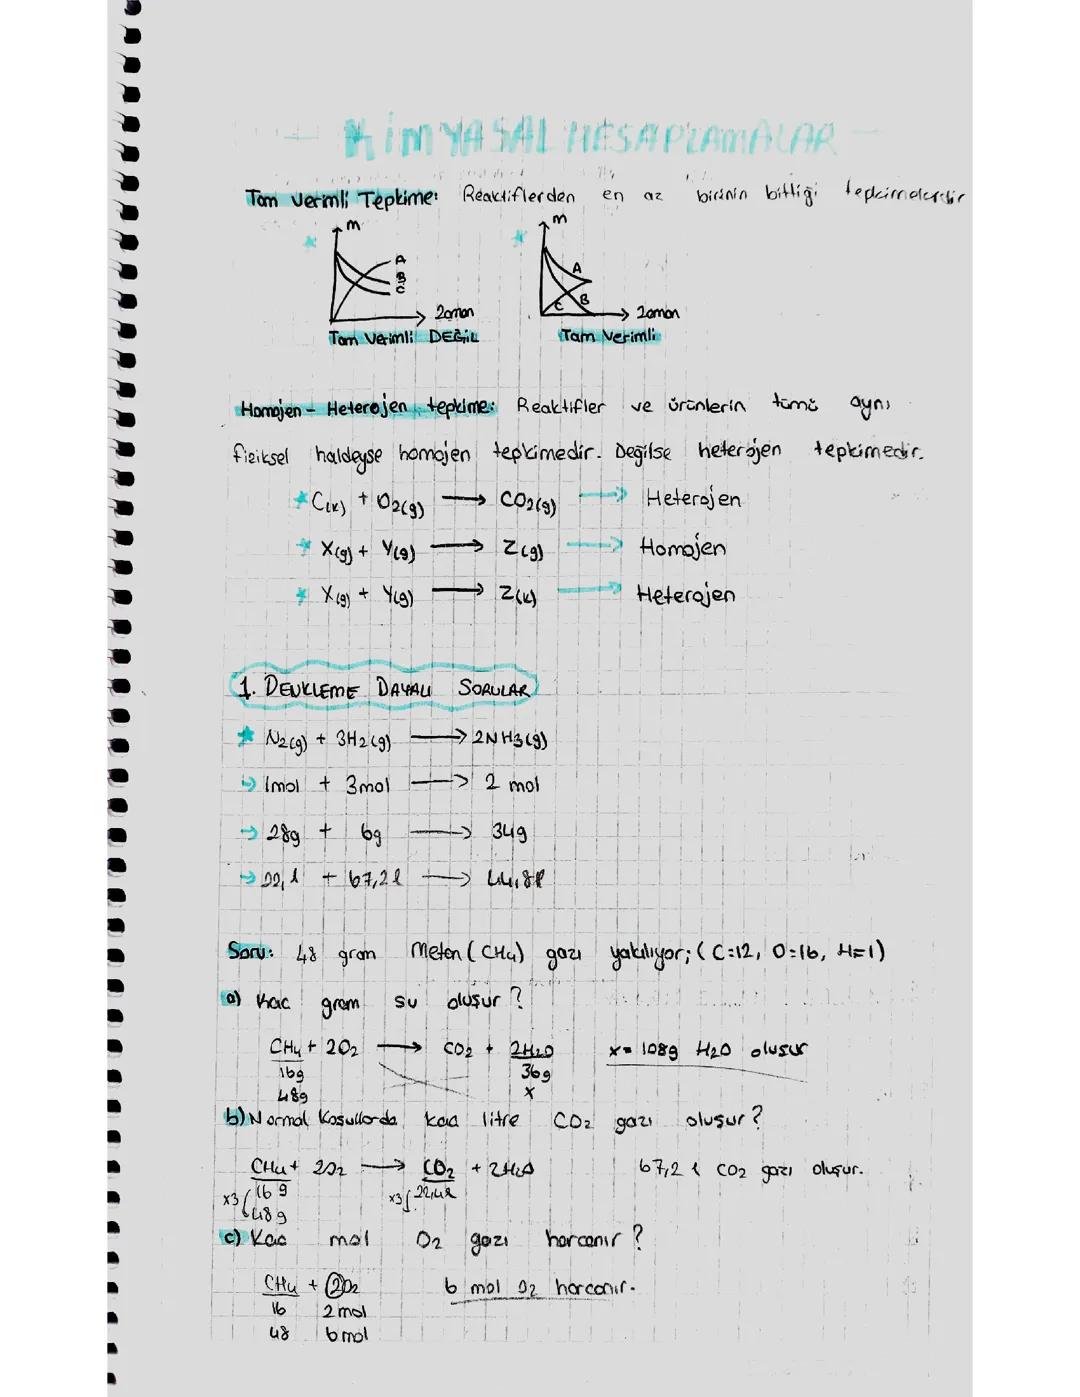 KİMYASAL HESAPLAMALAR
Tam Verimli Tepkime: Reaktiflerden en az birinin bittiği tepkimelerdir
m
A
B
C
zaman
Tam Verimli DEĞİL
m
A
B
C
zaman
Tam Verimli
Homojen - Heterojen tepkime: Reaktifler ve ürünlerin tümü aynı
fiziksel haldeyse homojen tepkimedir. Değilse heterojen tepkimedir.
C(k) + O2(g) → CO2(g) → Heterojen
X(g) + Y(g) → Z(g) → Homojen
X(g) + Y(g) → Z(k) → Heterojen
1. DENKLEME DAYALI SORULAR
N2(g) + 3H2(g) → 2NH3(g)
→ 1mol + 3mol → 2 mol
→ 28g + 6g → 34g
→ 22, l + 67,2 l → 44,8 l
Soru: 48 gram Metan (CH4) gazı yakılıyor; (C=12, O=16, H=1)
a) Kac gram su oluşur?
CH4 + 2O2 → CO2 + 2H2O x = 108g H2O oluşur
16g 36g
48g x
b) Normal Koşullarda kaç litre CO2 gazı oluşur?
CH4 + 2O2 → CO2 + 2H2O 67,2 l CO2 gazı oluşur.
x3 16 g x3 22,4 l
48g
c) Kac mol O2 gazı harcanır?
CH4 + 2O2 6 mol O2 harcanır.
16 2mol
48 6mol